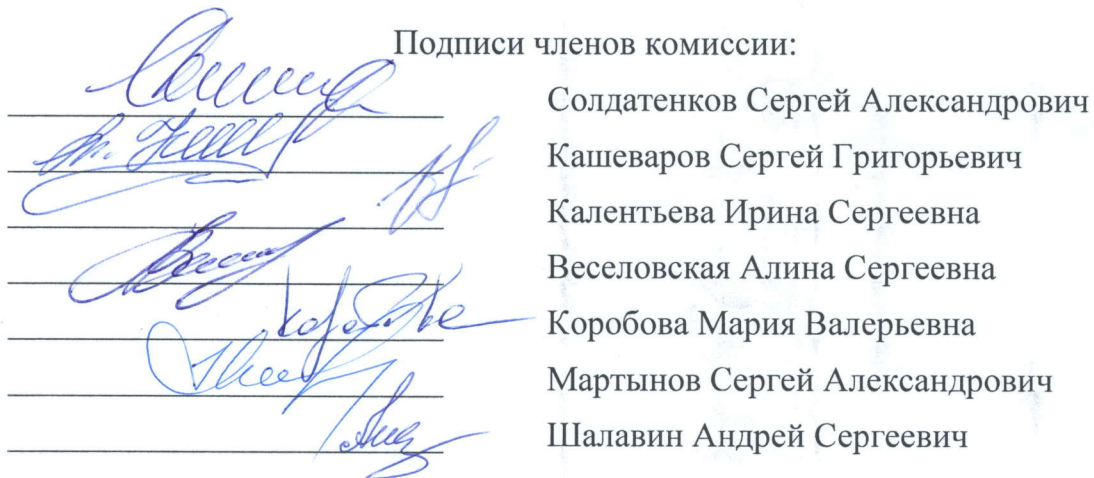 Подписи членов комиссии:
Солдатенков Сергей Александрович
Кашеваров Сергей Григорьевич
Калентьева Ирина Сергеевна
Веселовская Алина Сергеевна
Коробова Мария Валерьевна
Мартынов Сергей Александрович
Шалавин Андрей Сергеевич